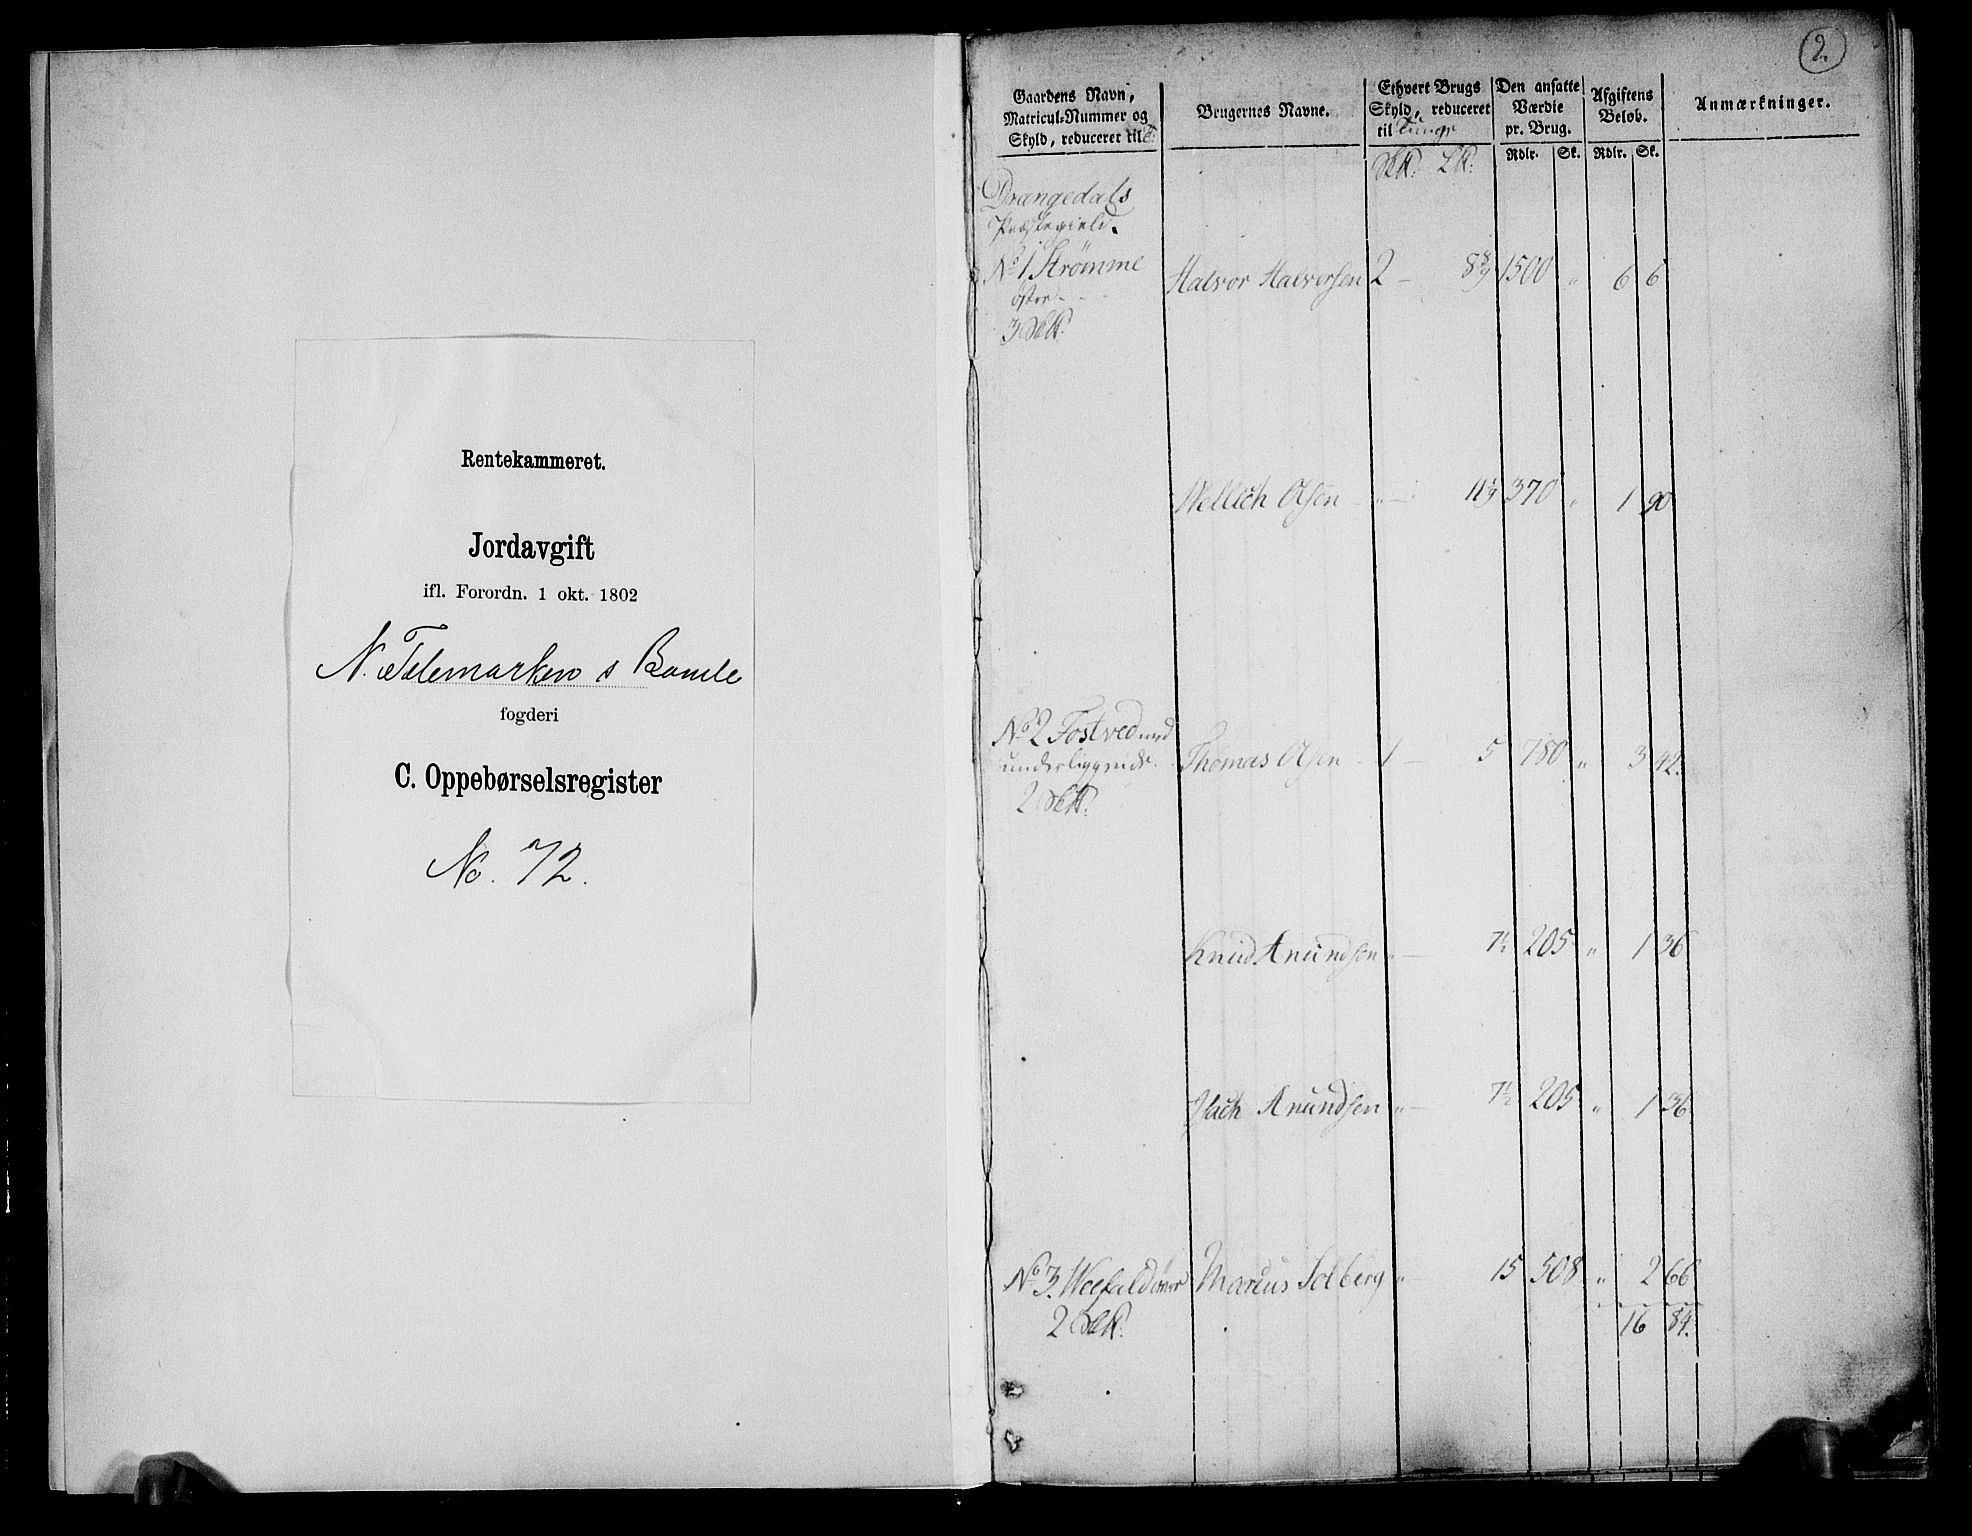 Rentekammeret.
Jordavgift
ifl. Forordn. 1 okt. 1802
N. Telemarken s Bamle
fogderi
C. Oppebørselsregister
No. 72.
2.
Gaardens Navn, Matricul-Nummer og Skyld, reduceret til
Brugernes Navne.
Ethvert Brugs Skyld, reduceret til Tunge
Den ansatte Værdie pr. Brug.
Afgiftens Beløb.
Anmærkninger.
Rdlr. Sk. Rdlr. Sk.
Drangedals
Præstegield.
No 1 Strømme Halvor Halvorsen 2 – 8 8/9 1500 " 6 6
øster
3
Wellich Olsen " – 11 1/9 370 " 1 90
No 2 Tostved med Thomas Olsen – 1 – 5 780 " 3 42.
underliggende
2
Knud Anundsen " – 7 1/2 205 " 1 36
Anundsen " – 7 1/2 205 " 1 36
No 3. Marcus Solberg " 15 508 " 2 66
2 16 84.